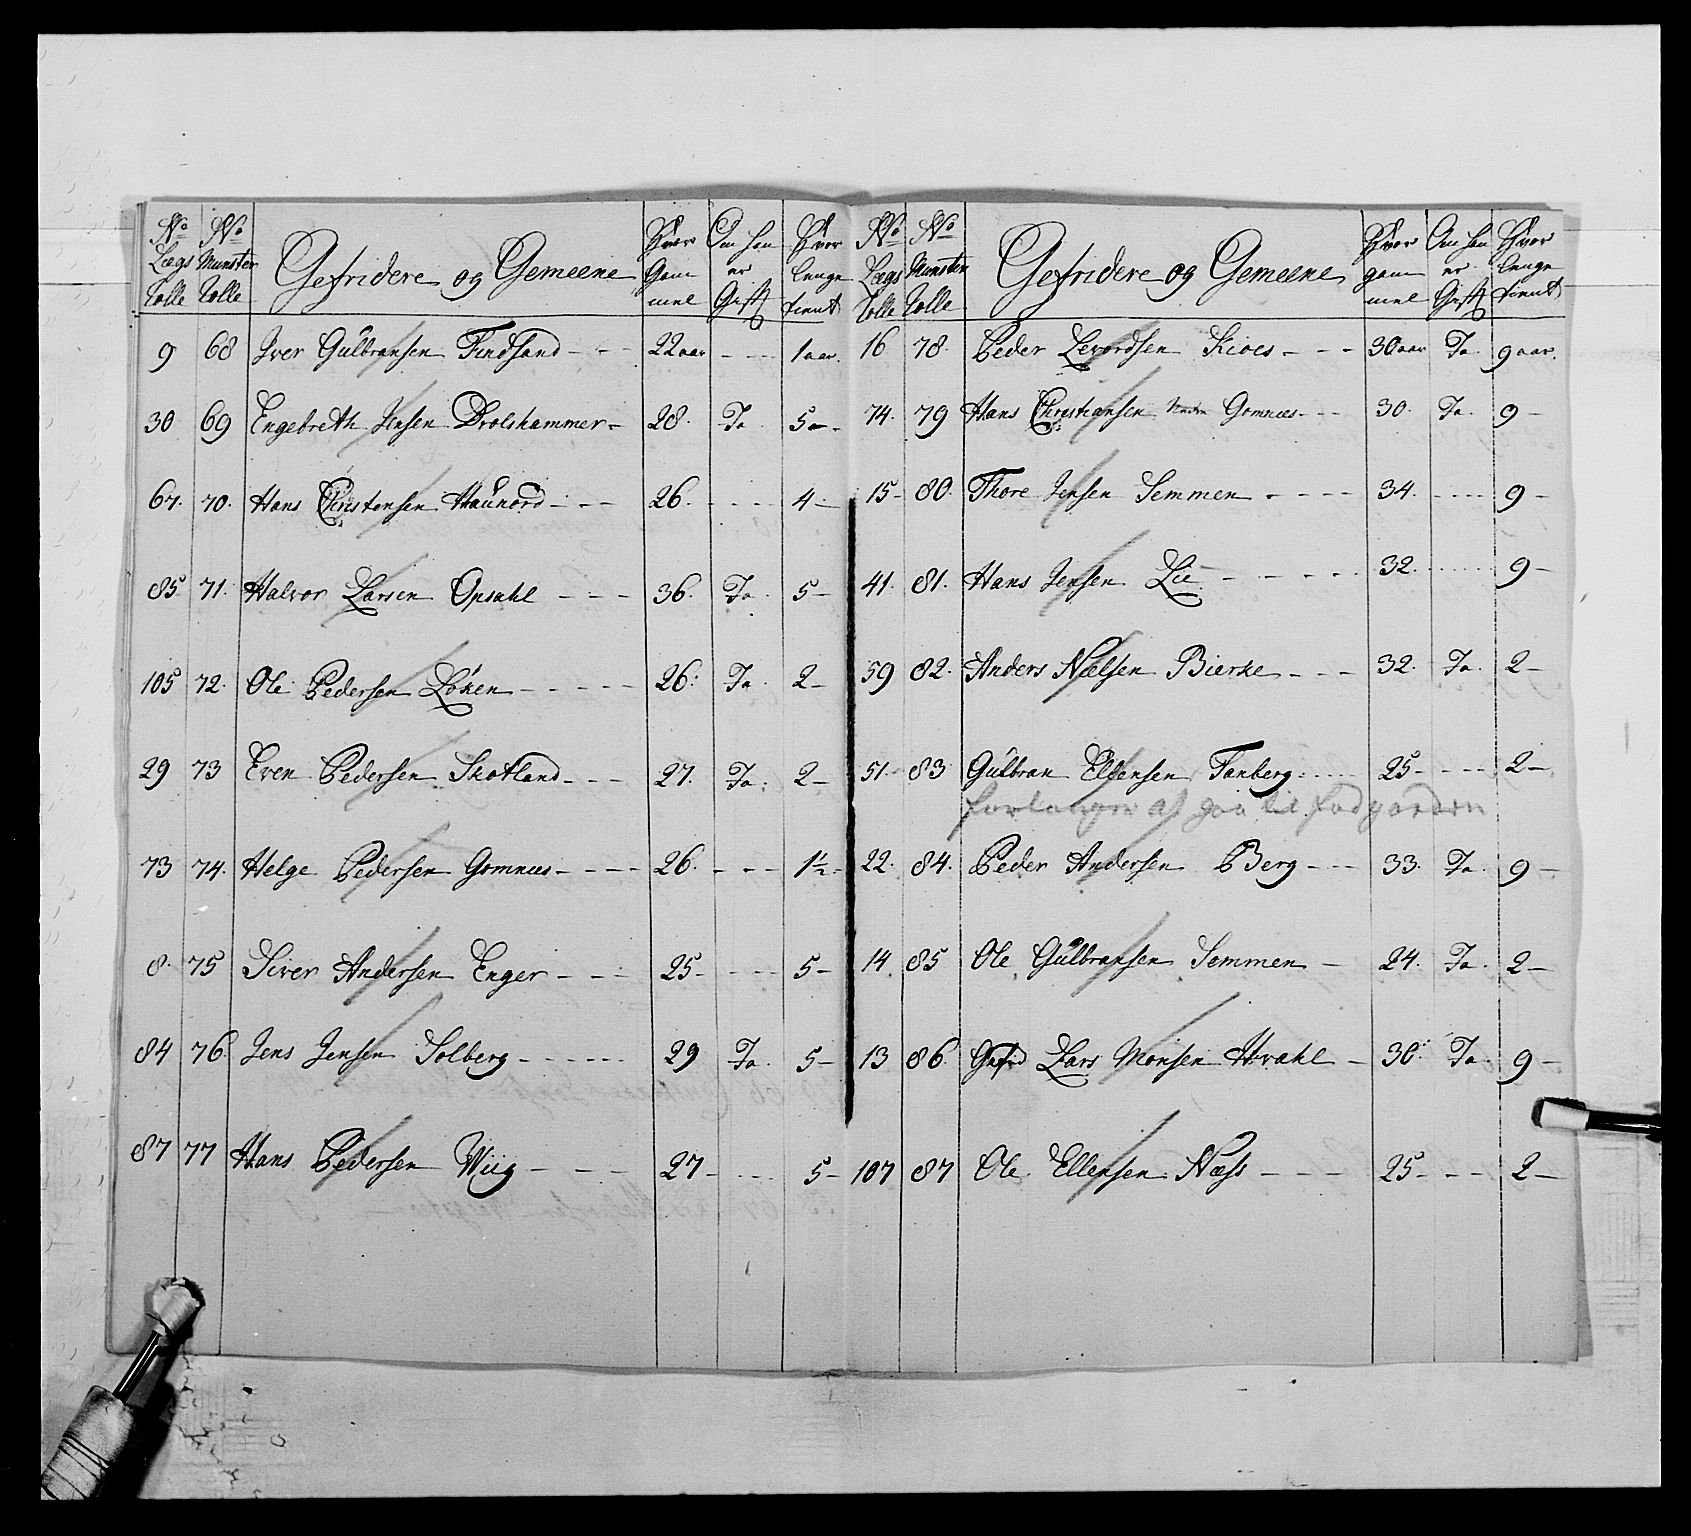 No Lægs Rolle | No Munster Rolle | Gefridere og Gemeene | Hvor Gammel | Om han er Gift | Hvor lenge tient
9 68 Iver Gülbransen Findsand - - - 22 aar - - - 1 aar.
30 69 Engebreth Jensen Drolshammer - 28. Ja 5 -
67. 70. Hans Christensen Haünord - - - 26. - - - 4 -
85 71. Halvor Larsen Opsahl - - - 36. Ja. 5 -
105 72. Ole Pedersen Løken - - - - - 26. Ja. 2 -
29 73 Even Pedersen Skotland - - - 27. Ja. 2 -
73 74. Helge Pedersen Gomnæs - - - - 26. - - - 1½ -
8. 75 Siver Andersen Enger - - - 25 - - - - 5 -
84 76. Jens Jensen Solberg - - - - - - 29 Ja 5 -
87 77 Hans Pedersen Wiig - - - 27 - - - - 5 -
No Lægs Rolle | No Munster Rolle | Gefridere og Gemeene | Hvor gammel | Om han er Gift | Hvor lenge tient
16 78. Peder Levordsen Kioes - - - 30 aar Ja. 9 aar.
74. 79 Hans Christiansen Gomnæs - - - 30. Ja. 9 -
15 - 80. Thore Jensen Semmen - - - - 34. - - - - 9 -
41. 81. Hans Jensen Lie - - - - - 32. - - - - 9 -
59 82. Anders Nielsen Bierke - - - 32. Ja. 2 -
51. 83 Gülbran Ellensen Tanberg - - - 25 - - - - 2 -
forlanger at gaa til fodgarden
22. 84. Peder Andersen Berg - - - 33. Ja. 9 -
14. 85 Ole Gülbransen Semmen - 24. Ja. 2 -
13 86. Gefrid Lars Monsen Hvahl - 30. Ja. 9 -
107 87 Ole Ellensen Næss - - - - 25 - - - 2 -